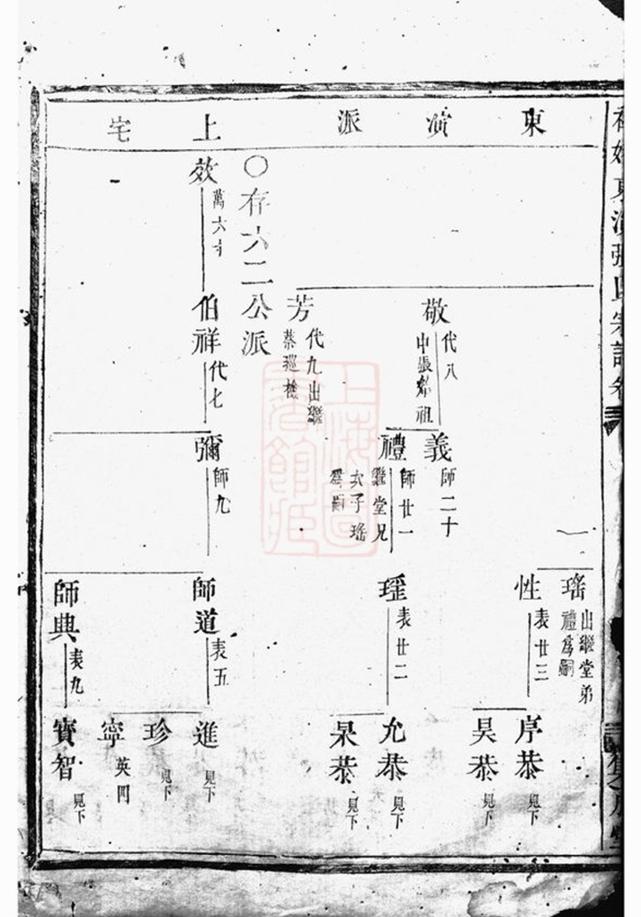 東演派上宅
東演張氏宗譜卷三
瑤 出繼堂弟禮為嗣
性 表廿三
序恭 見下
昊恭 見下
敬 代八 中張始祖
義 師二十
禮 師廿一 繼堂兄次子瑤為嗣
瑾 表廿二
允恭 見下
杲恭 見下
芳 代九出繼蔡巡檢
〇存六二公派
效 萬六十
伯祥 代七
彌 師九
師道 表五
進 見下
珍 見下
寧 英四
師典 表九
寶智 見下